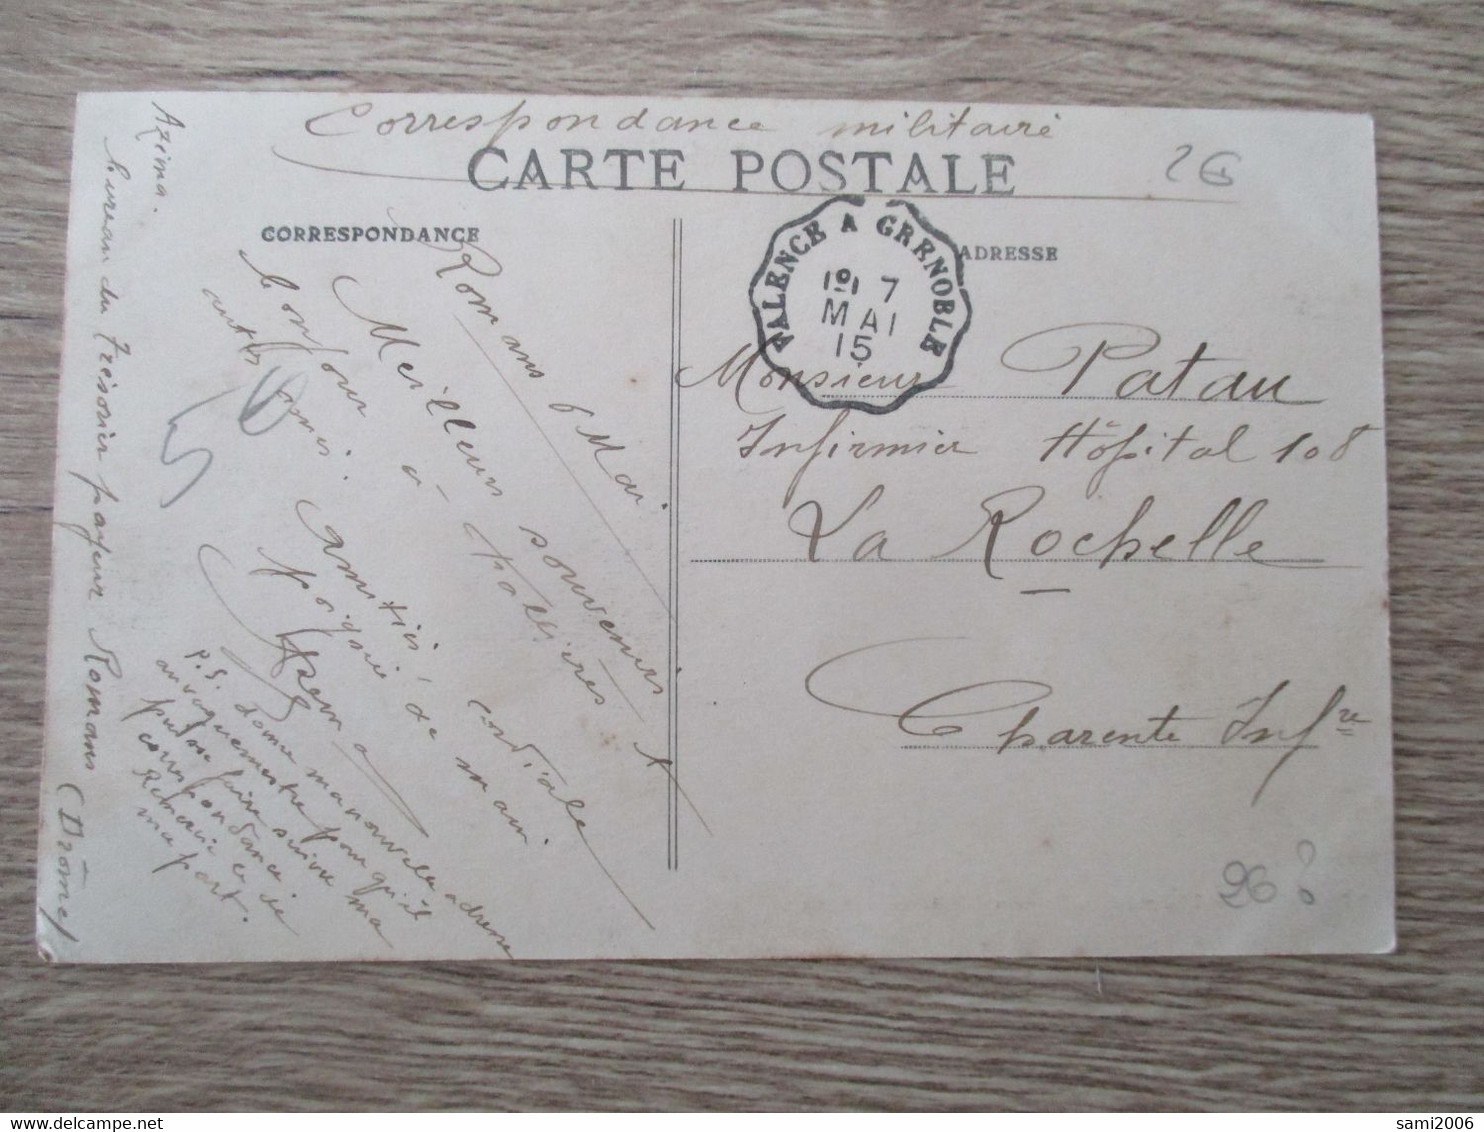 Correspondance militaire
CARTE POSTALE
2€
CORRESPONDANCE
ADRESSE
VALENCE A GRENOBLE
1º 7
MAI
15
Romans 6 Mai
Meilleurs souvenirs &
bonjour à
autres amis.
Amitiés, cordiale
poignée de main
Azema
P.S. Donne ma nouvelle adresse
au vaguemestre pour qu'il
puisse faire suivre ma
correspondance.
Remercie le de
ma part.
Azema.
bureau du Trésorier payeur Romans (Drôme)
Monsieur Patau
Infirmier Hôpital 108
La Rochelle
Charente Infre
26?
sami2006